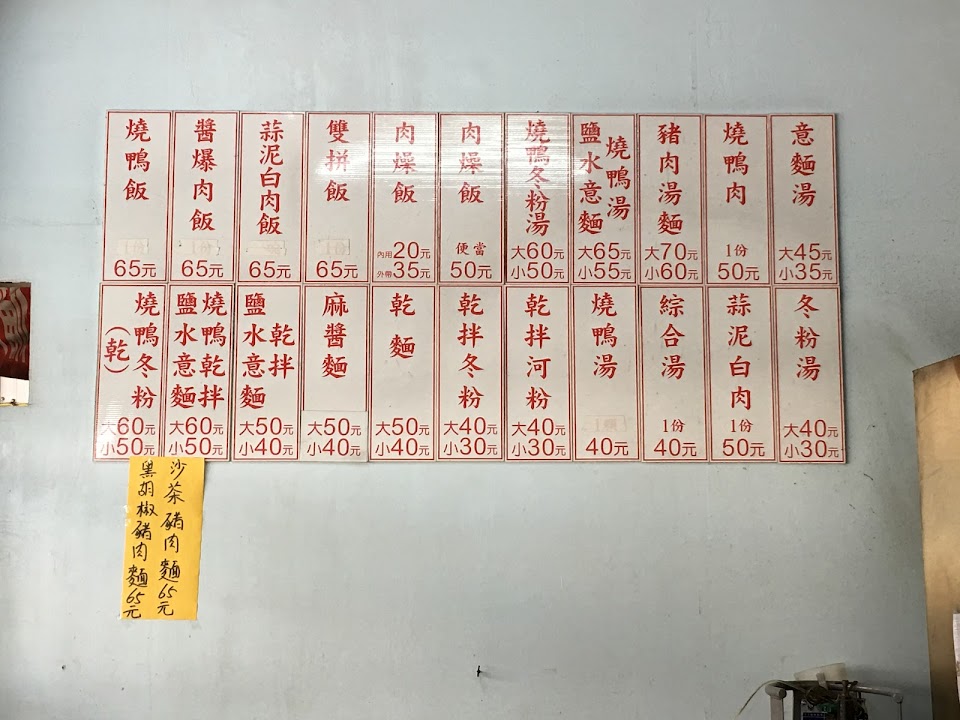 燒鴨飯
1份
65元
醬爆肉飯
1份
65元
蒜泥白肉飯
65元
雙拼飯
1份
65元
肉燥飯
內用20元
外帶35元
肉燥飯
便當
50元
燒鴨冬粉湯
大60元
小50元
燒鴨湯
鹽水意麵
大65元
小55元
豬肉湯麵
大70元
小60元
燒鴨肉
1份
50元
意麵湯
大45元
小35元
燒鴨冬粉
(乾)
大60元
小50元
燒鴨乾拌
鹽水意麵
大60元
小50元
乾拌
鹽水意麵
大50元
小40元
麻醬麵
大50元
小40元
乾麵
大50元
小40元
乾拌冬粉
大40元
小30元
乾拌河粉
大40元
小30元
燒鴨湯
40元
綜合湯
1份
40元
蒜泥白肉
1份
50元
冬粉湯
大40元
小30元
沙茶豬肉麵65元
黑胡椒豬肉麵65元